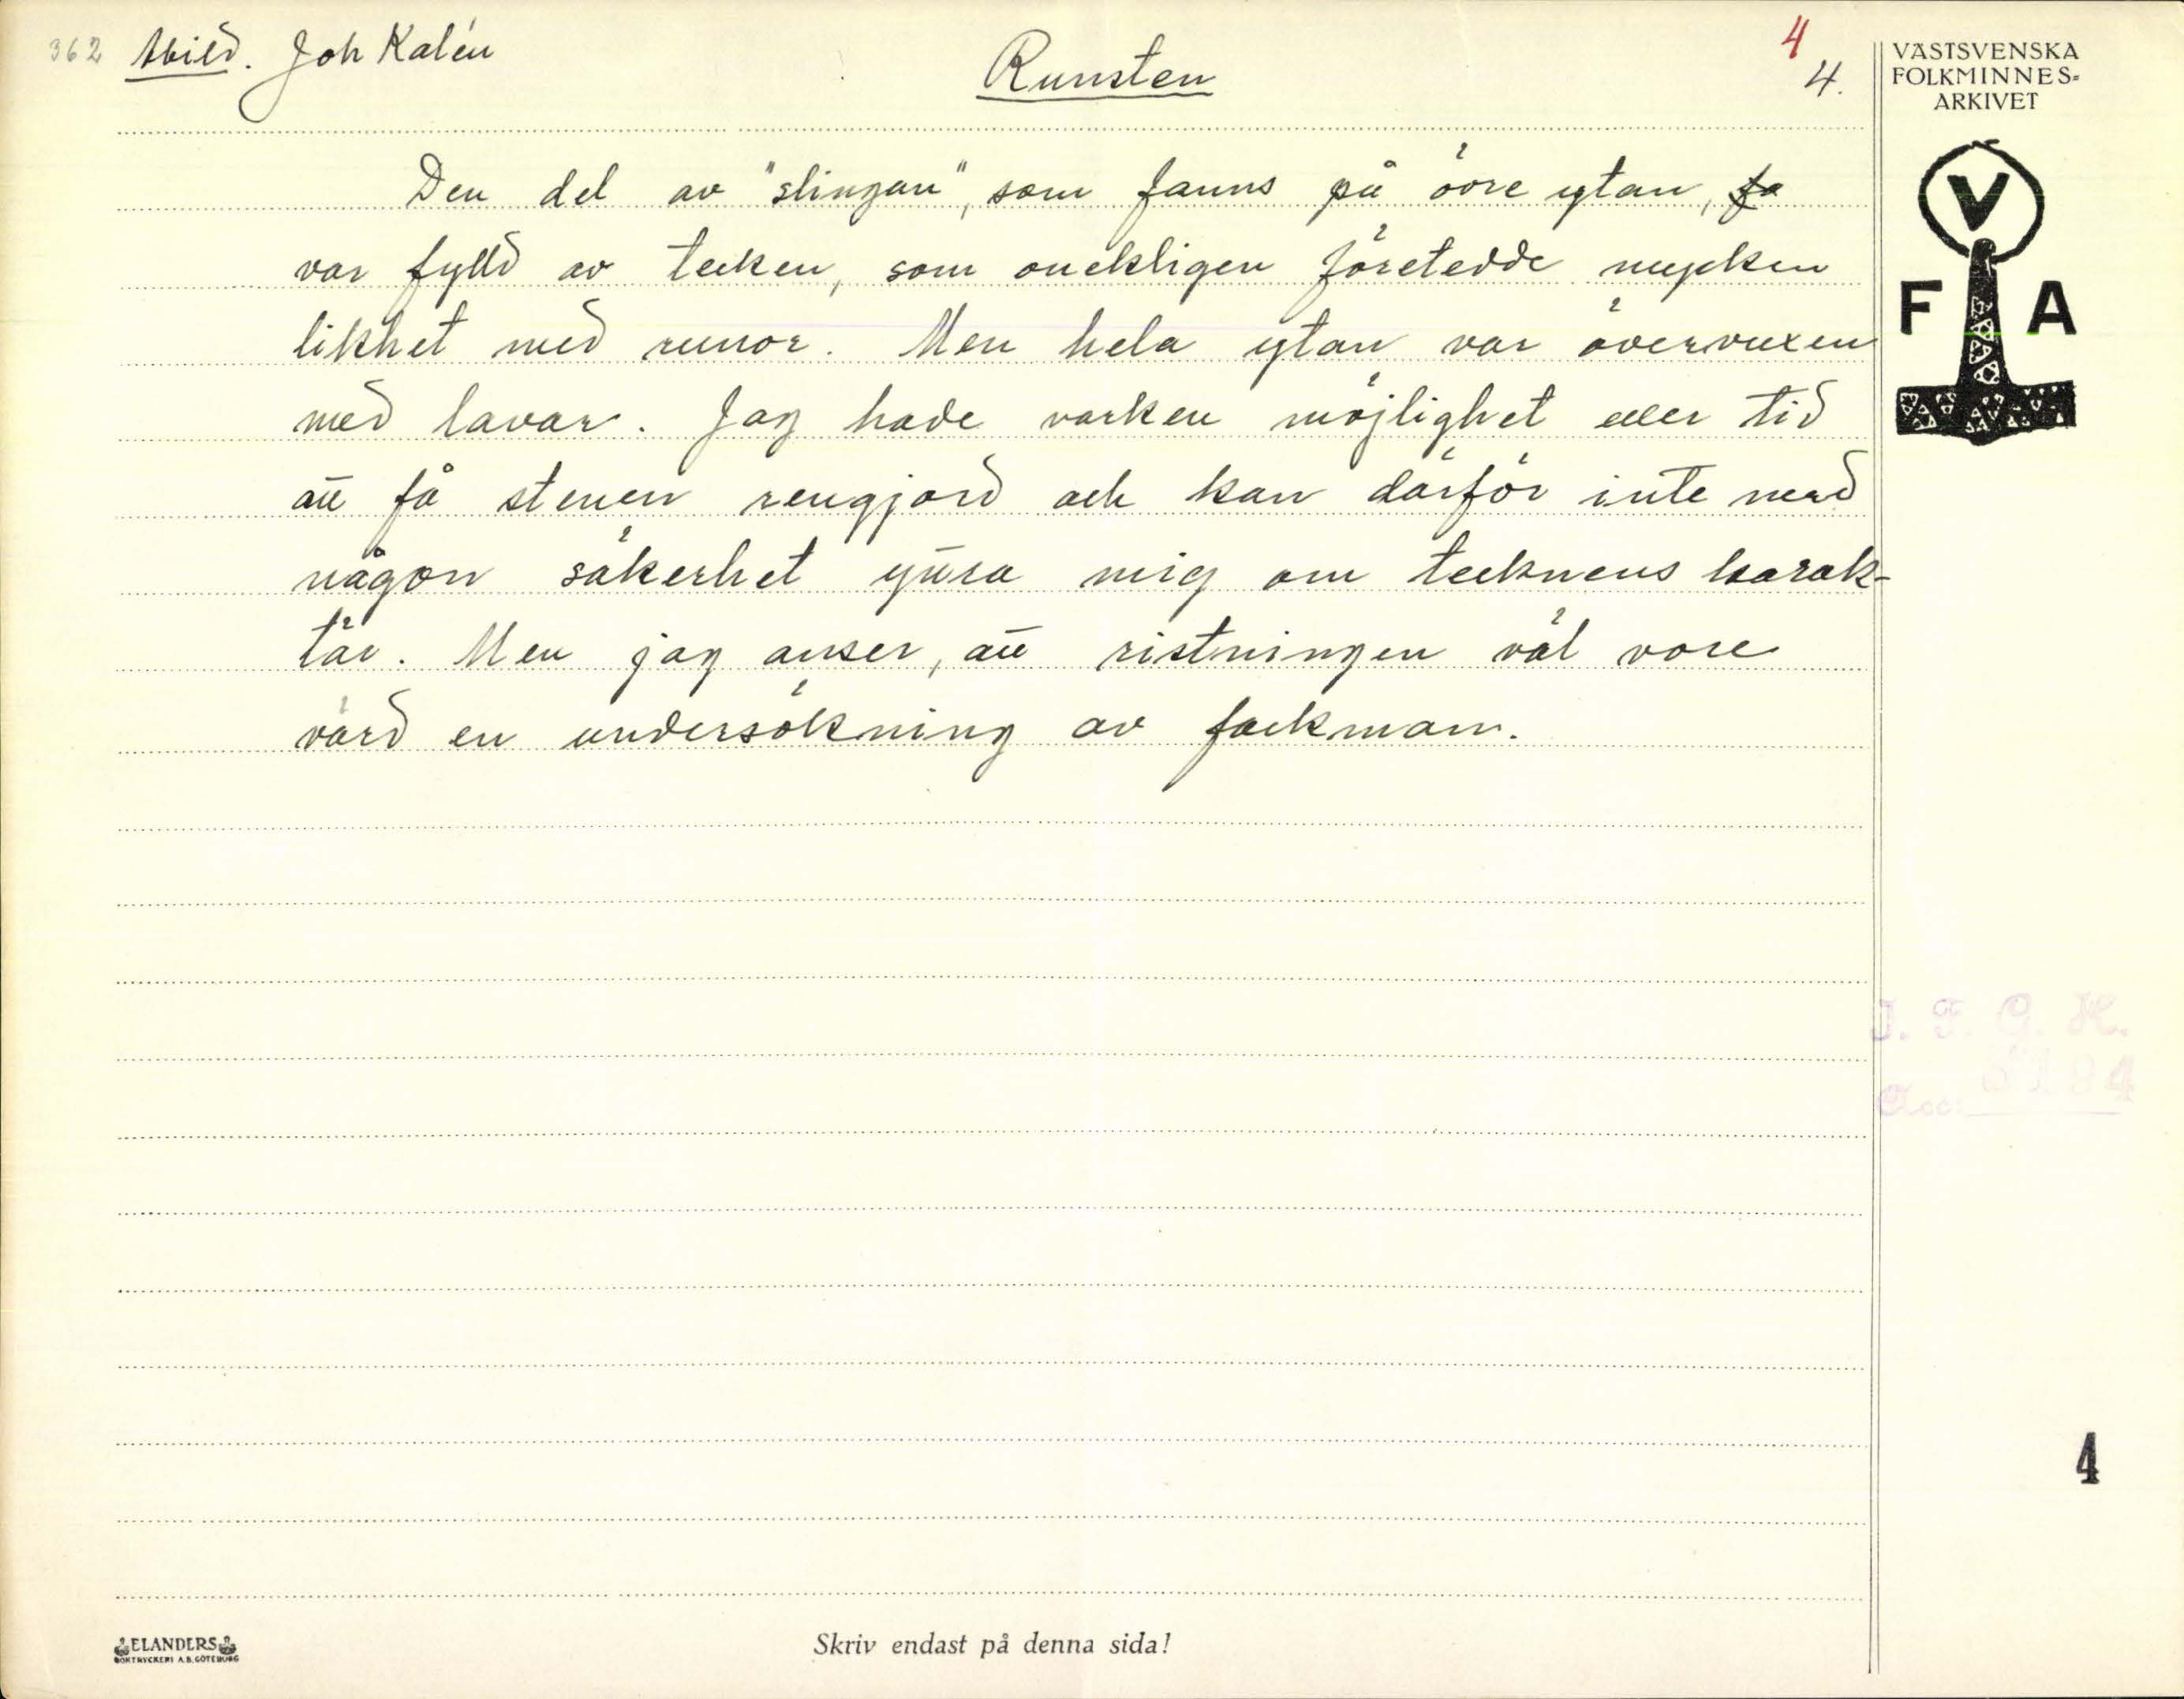 362 Abild. Joh Kalén
Runsten
4
4.
VÄSTSVENSKA
FOLKMINNES-
ARKIVET
V
F A
Den del av "slingan", som fanns på övre ytan, fa
var fylld av tecken, som onekligen företedde mycken
likhet med runor. Men hela ytan var övervuxen
med lavar. Jag hade varken möjlighet eller tid
att få stenen rengjord och kan därför inte med
någon säkerhet yttra mig om tecknens karak-
tär. Men jag anser, att ristningen väl vore
värd en undersökning av fackman.
I. F. G. H.
Acc.
4
ELANDERS
BOKTRYCKERI A.B. GÖTEBORG
Skriv endast på denna sida!